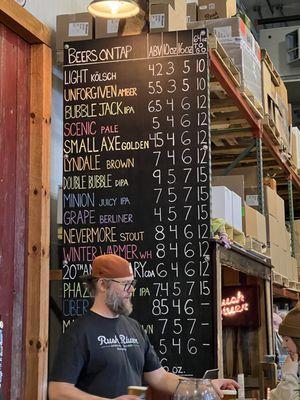 BEERS ON TAP ABV 10oz 16oz 64oz TO GO
LIGHT KÖLSCH 4.2 3 5 10
UNFORGIVEN AMBER 5.5 3 5 10
BUBBLE JACK IPA 6.5 4 6 12
SCENIC PALE 5 4 6 12
SMALL AXE GOLDEN 4.5 4 6 12
LYNDALE BROWN 7 4 6 12
DOUBLE BUBBLE DIPA 9 5 7 15
MINION JUICY IPA 7 4 6 12
GRAPE BERLINER 4 5 7 15
NEVERMORE STOUT 8 4 6 12
WINTER WARMER WH 8 4 6 12
20TH ANNIVERSARY CDA 6 4 6 12
PHA IPA 7.4 5 7 15
CIDER 8.5 4 6 –
MA 7 5 7 –
5 4 6 –
Rush River
BREWING
Rush
River